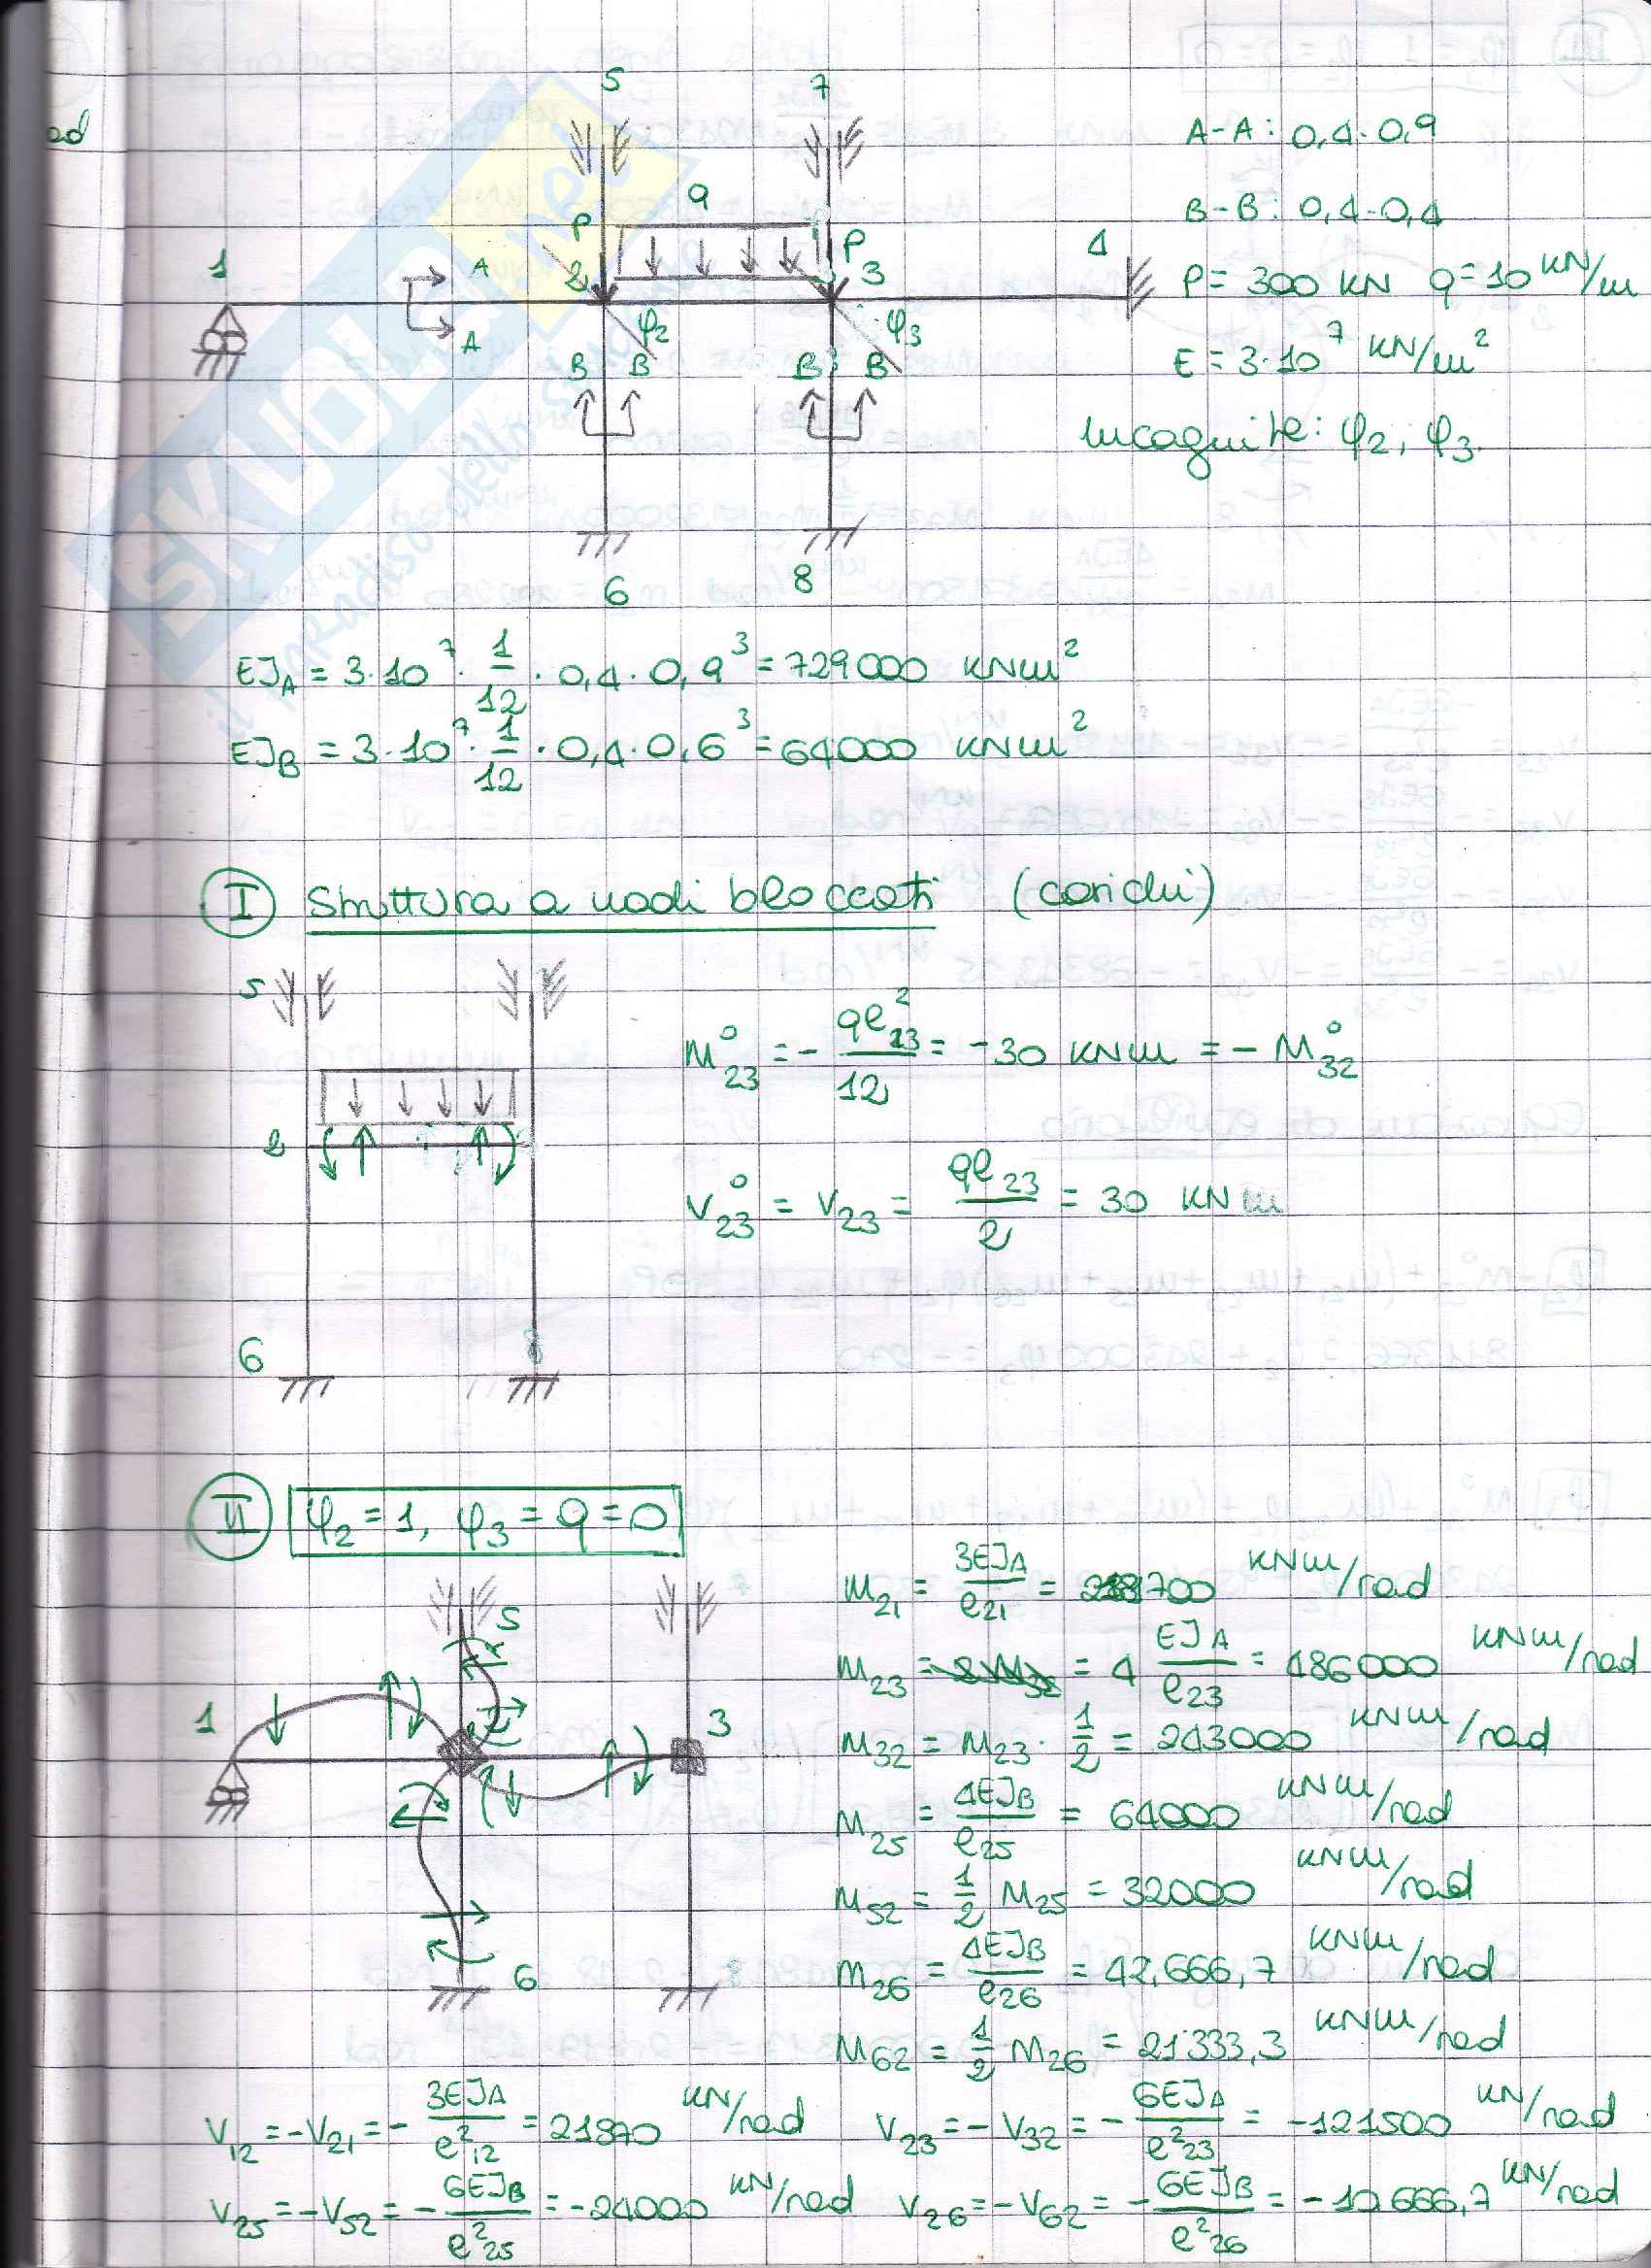 ad
5 7
A-A: 0,4·0,9
B-B: 0,4·0,4
q
P P
1 A 2 3 4
P= 300 KN q=10 KN/m
A φ2 φ3
B B B B
E = 3·10^7 KN/m^2
Incognite: φ2, φ3.
6 8
SKUOLA.net
il paradiso dello studente
EJ_A = 3·10^7 · 1/12 · 0,4 · 0,9^3 = 729000 KNm^2
EJ_B = 3·10^7 · 1/12 · 0,4 · 0,6^3 = 64000 KNm^2
I Struttura a nodi bloccati (carichi)
5
M°_23 = - ql^2_23/12 = -30 KNm = - M°_32
2
V°_23 = V_23 = ql_23/2 = 30 KN
6 8
II φ2 = 1, φ3 = q = 0
M_21 = 3EJ_A/l_21 = 218700 KNm/rad
5
M_23 = 4 EJ_A/l_23 = 486000 KNm/rad
1 3
M_32 = M_23 · 1/2 = 243000 KNm/rad
M_25 = 4EJ_B/l_25 = 64000 KNm/rad
M_52 = 1/2 M_25 = 32000 KNm/rad
6
M_26 = 4EJ_B/l_26 = 42.666,7 KNm/rad
M_62 = 1/2 M_26 = 21333,3 KNm/rad
V_12 = -V_21 = - 3EJ_A/l^2_12 = 21870 KN/rad V_23 = -V_32 = - 6EJ_A/l^2_23 = -121500 KN/rad
V_25 = -V_52 = - 6EJ_B/l^2_25 = -24000 KN/rad V_26 = -V_62 = - 6EJ_B/l^2_26 = -10666,7 KN/rad